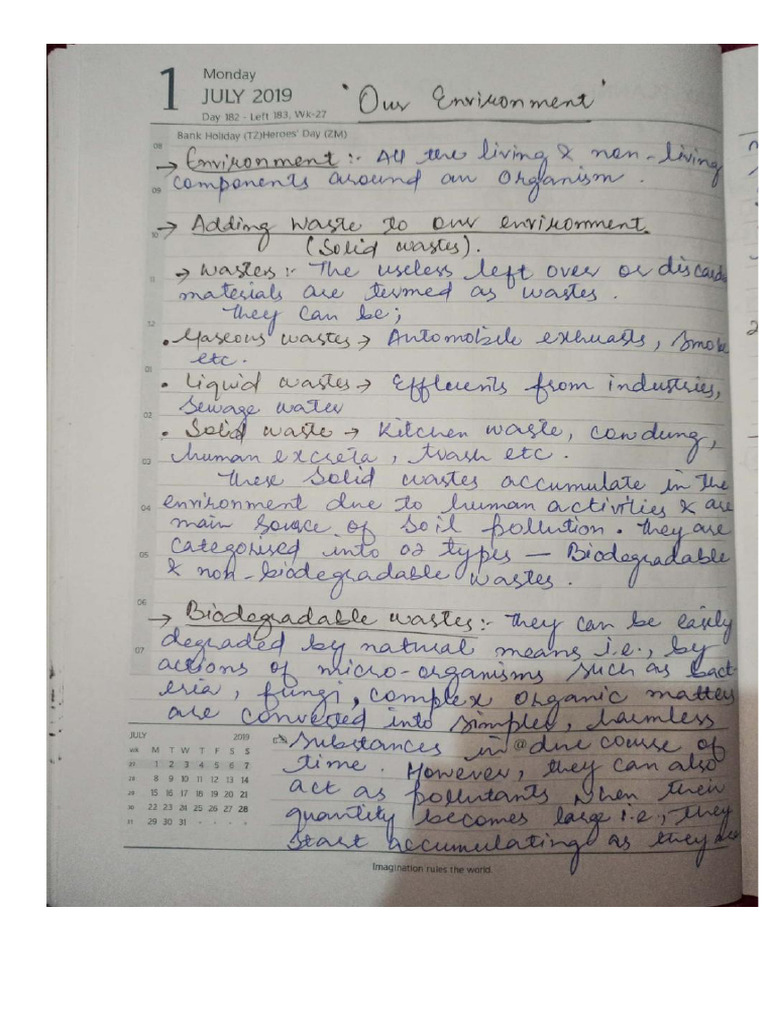 1 Monday
JULY 2019
Day 182 - Left 183, Wk-27
'Our Environment'
Bank Holiday (TZ)Heroes' Day (ZM)
08
→ Environment :- All the living & non-living
09
components around an organism.
10
→ Adding waste to our environment.
(Solid wastes).
11
→ Wastes :- The useless left over or discard
materials are termed as wastes.
They can be;
12
• Gaseous wastes → Automobile exhuasts, Smoke
etc.
01
• Liquid wastes → Effluents from industries,
02
Sewage water
• Solid waste → Kitchen waste, cowdung,
03
human excreta, trash etc.
These solid wastes accumulate in the
04
environment due to human activities & are
main source of soil pollution. They are
05
categorised into 02 types — Biodegradable
& non-biodegradable wastes.
06
→ Biodegradable wastes :- They can be easily
07
degraded by natural means i.e., by
actions of micro-organisms such as bact-
eria, fungi, complex organic matter
are converted into simpler, harmless
substances in due course of
time. However, they can also
act as pollutants when their
quantity becomes large i.e, they
start accumulating as they are
JULY 2019
Wk M T W T F S S
27 1 2 3 4 5 6 7
28 8 9 10 11 12 13 14
29 15 16 17 18 19 20 21
30 22 23 24 25 26 27 28
31 29 30 31 · · · ·
Imagination rules the world